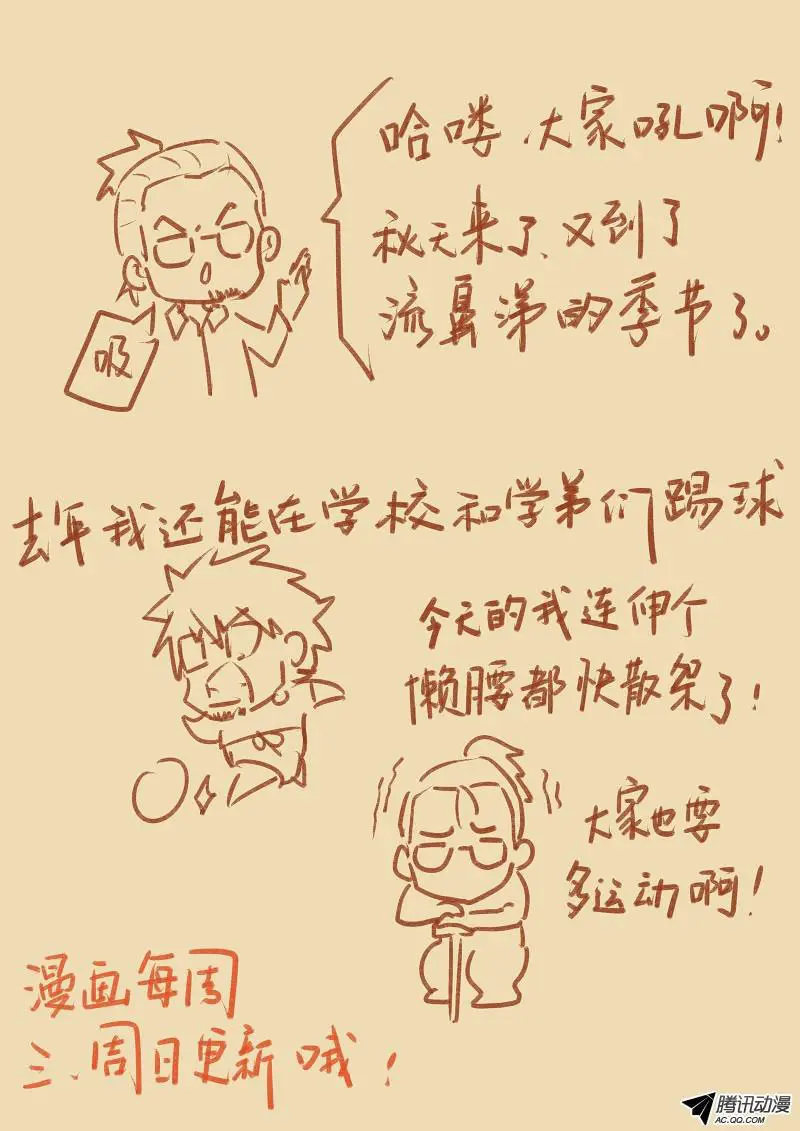 哈喽、大家吼啊!
秋天来了、又到了
流鼻涕的季节了。
吸
去年我还能在学校和学弟们踢球
今天的我连伸个
懒腰都快散架了!
大家也要
多运动啊!
漫画每周
三、周日更新哦!
腾讯动漫
AC.QQ.COM